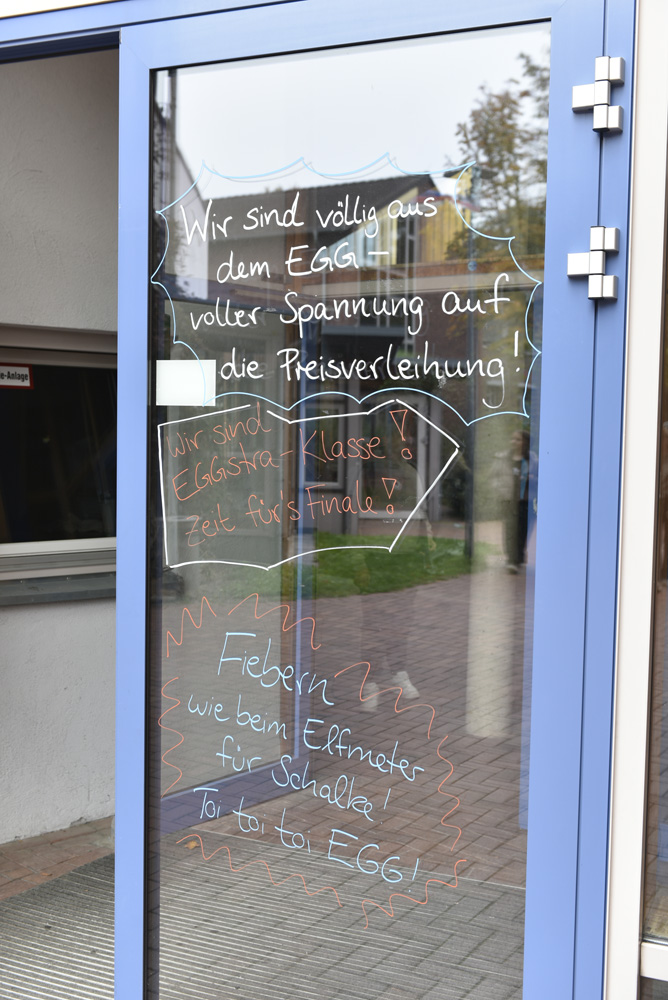 Wir sind völlig aus
dem EGG -
voller Spannung auf
die Preisverleihung!
Wir sind
EGGstra-Klasse!
Zeit für's Finale!
Fiebern
wie beim Elfmeter
für Schalke!
Toi toi toi EGG!
e-Anlage